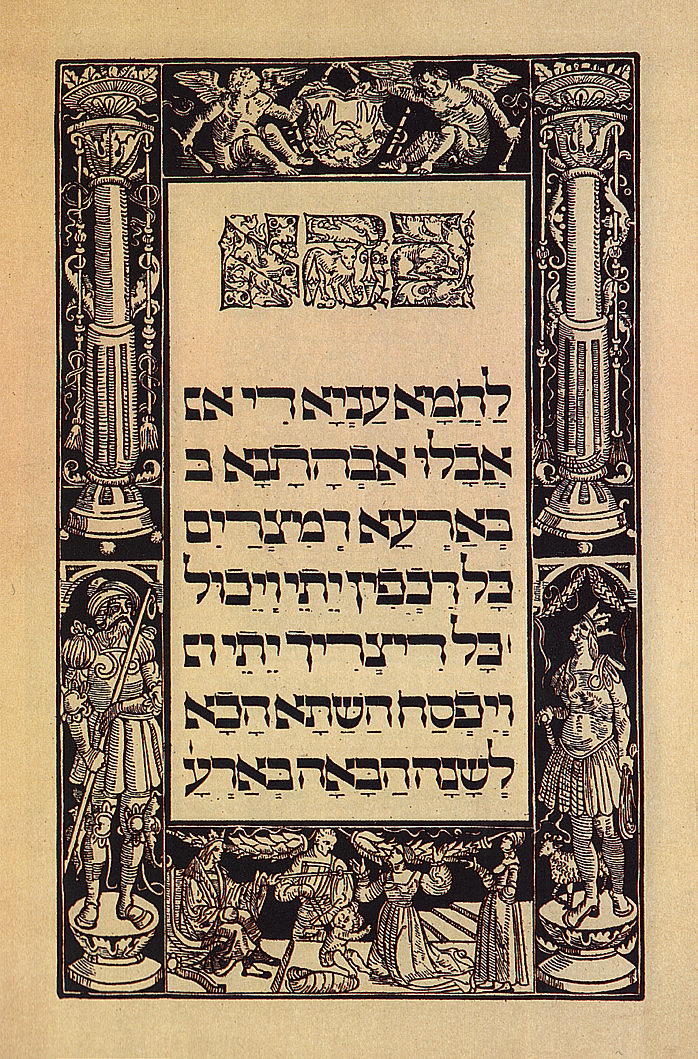 כהא
לַחְמָא עַנְיָא דִי אכ
אֲכָלוּ אַבְהָתָנָא ב
בְּאַרְעָא דְמִצְרָיִם
כָּל דִכְפִין יֵתֵי וְיֵכוּל
וכָּל דִיצְרִיךְ יֵתֵי
וְיִפְסַח הָשַׁתָּא הָכָא
לְשָׁנָה הַבָּאָה בְּאַרְעָ